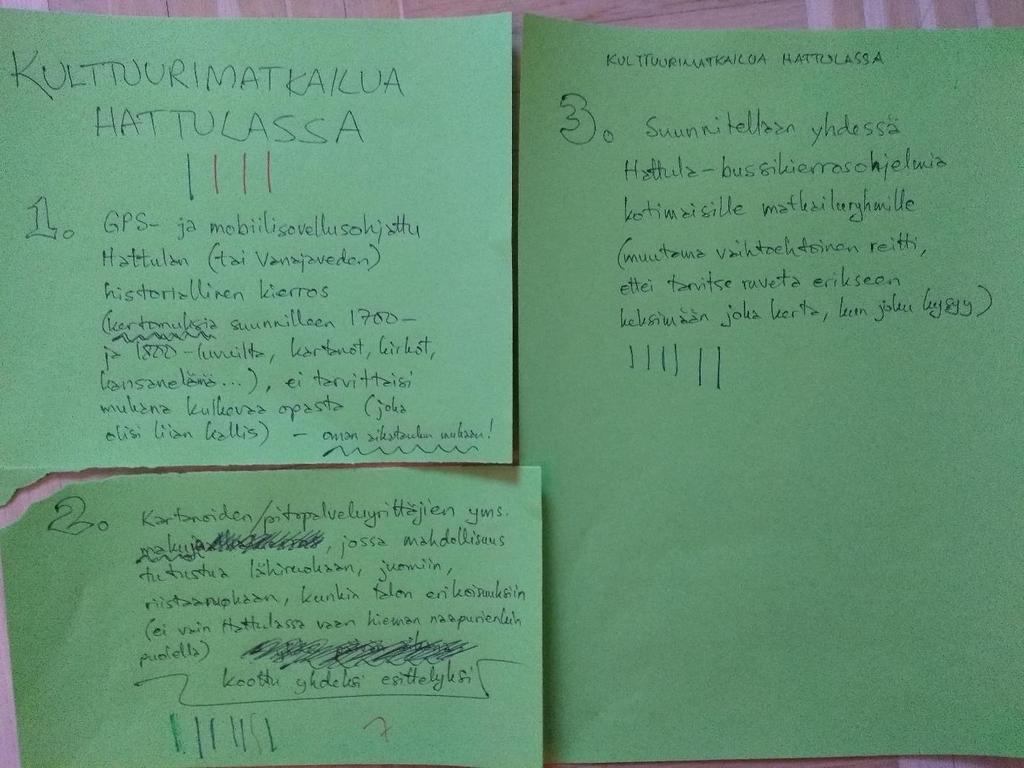 KULTTUURIMATKAILUA
HATTULASSA
1. GPS- ja mobiilisovellusohjattu
Hattulan (tai Vanajaveden)
historiallinen kierros
(kertomuksia suunnilleen 1700-
ja 1800-luvuilta, kartanot, kirkot,
kansanelämä...), ei tarvittaisi
mukana kulkevaa opasta (joka
olisi liian kallis) - oman aikataulun mukaan!
2. Kartanoiden/pitopalveluyrittäjien yms.
makuja, jossa mahdollisuus
tutustua lähiruokaan, juomiin,
riistaruokaan, kunkin talon erikoisuuksiin
(ei vain Hattulassa vaan hieman naapurienkin
puolella)
koottu yhdeksi esittelyksi
7
KULTTUURIMATKAILUA HATTULASSA
3. Suunnitellaan yhdessä
Hattula-bussikierrosohjelmia
kotimaisille matkailuryhmille
(muutama vaihtoehtoinen reitti,
ettei tarvitse ruveta erikseen
keksimään joka kerta, kun joku kysyy)